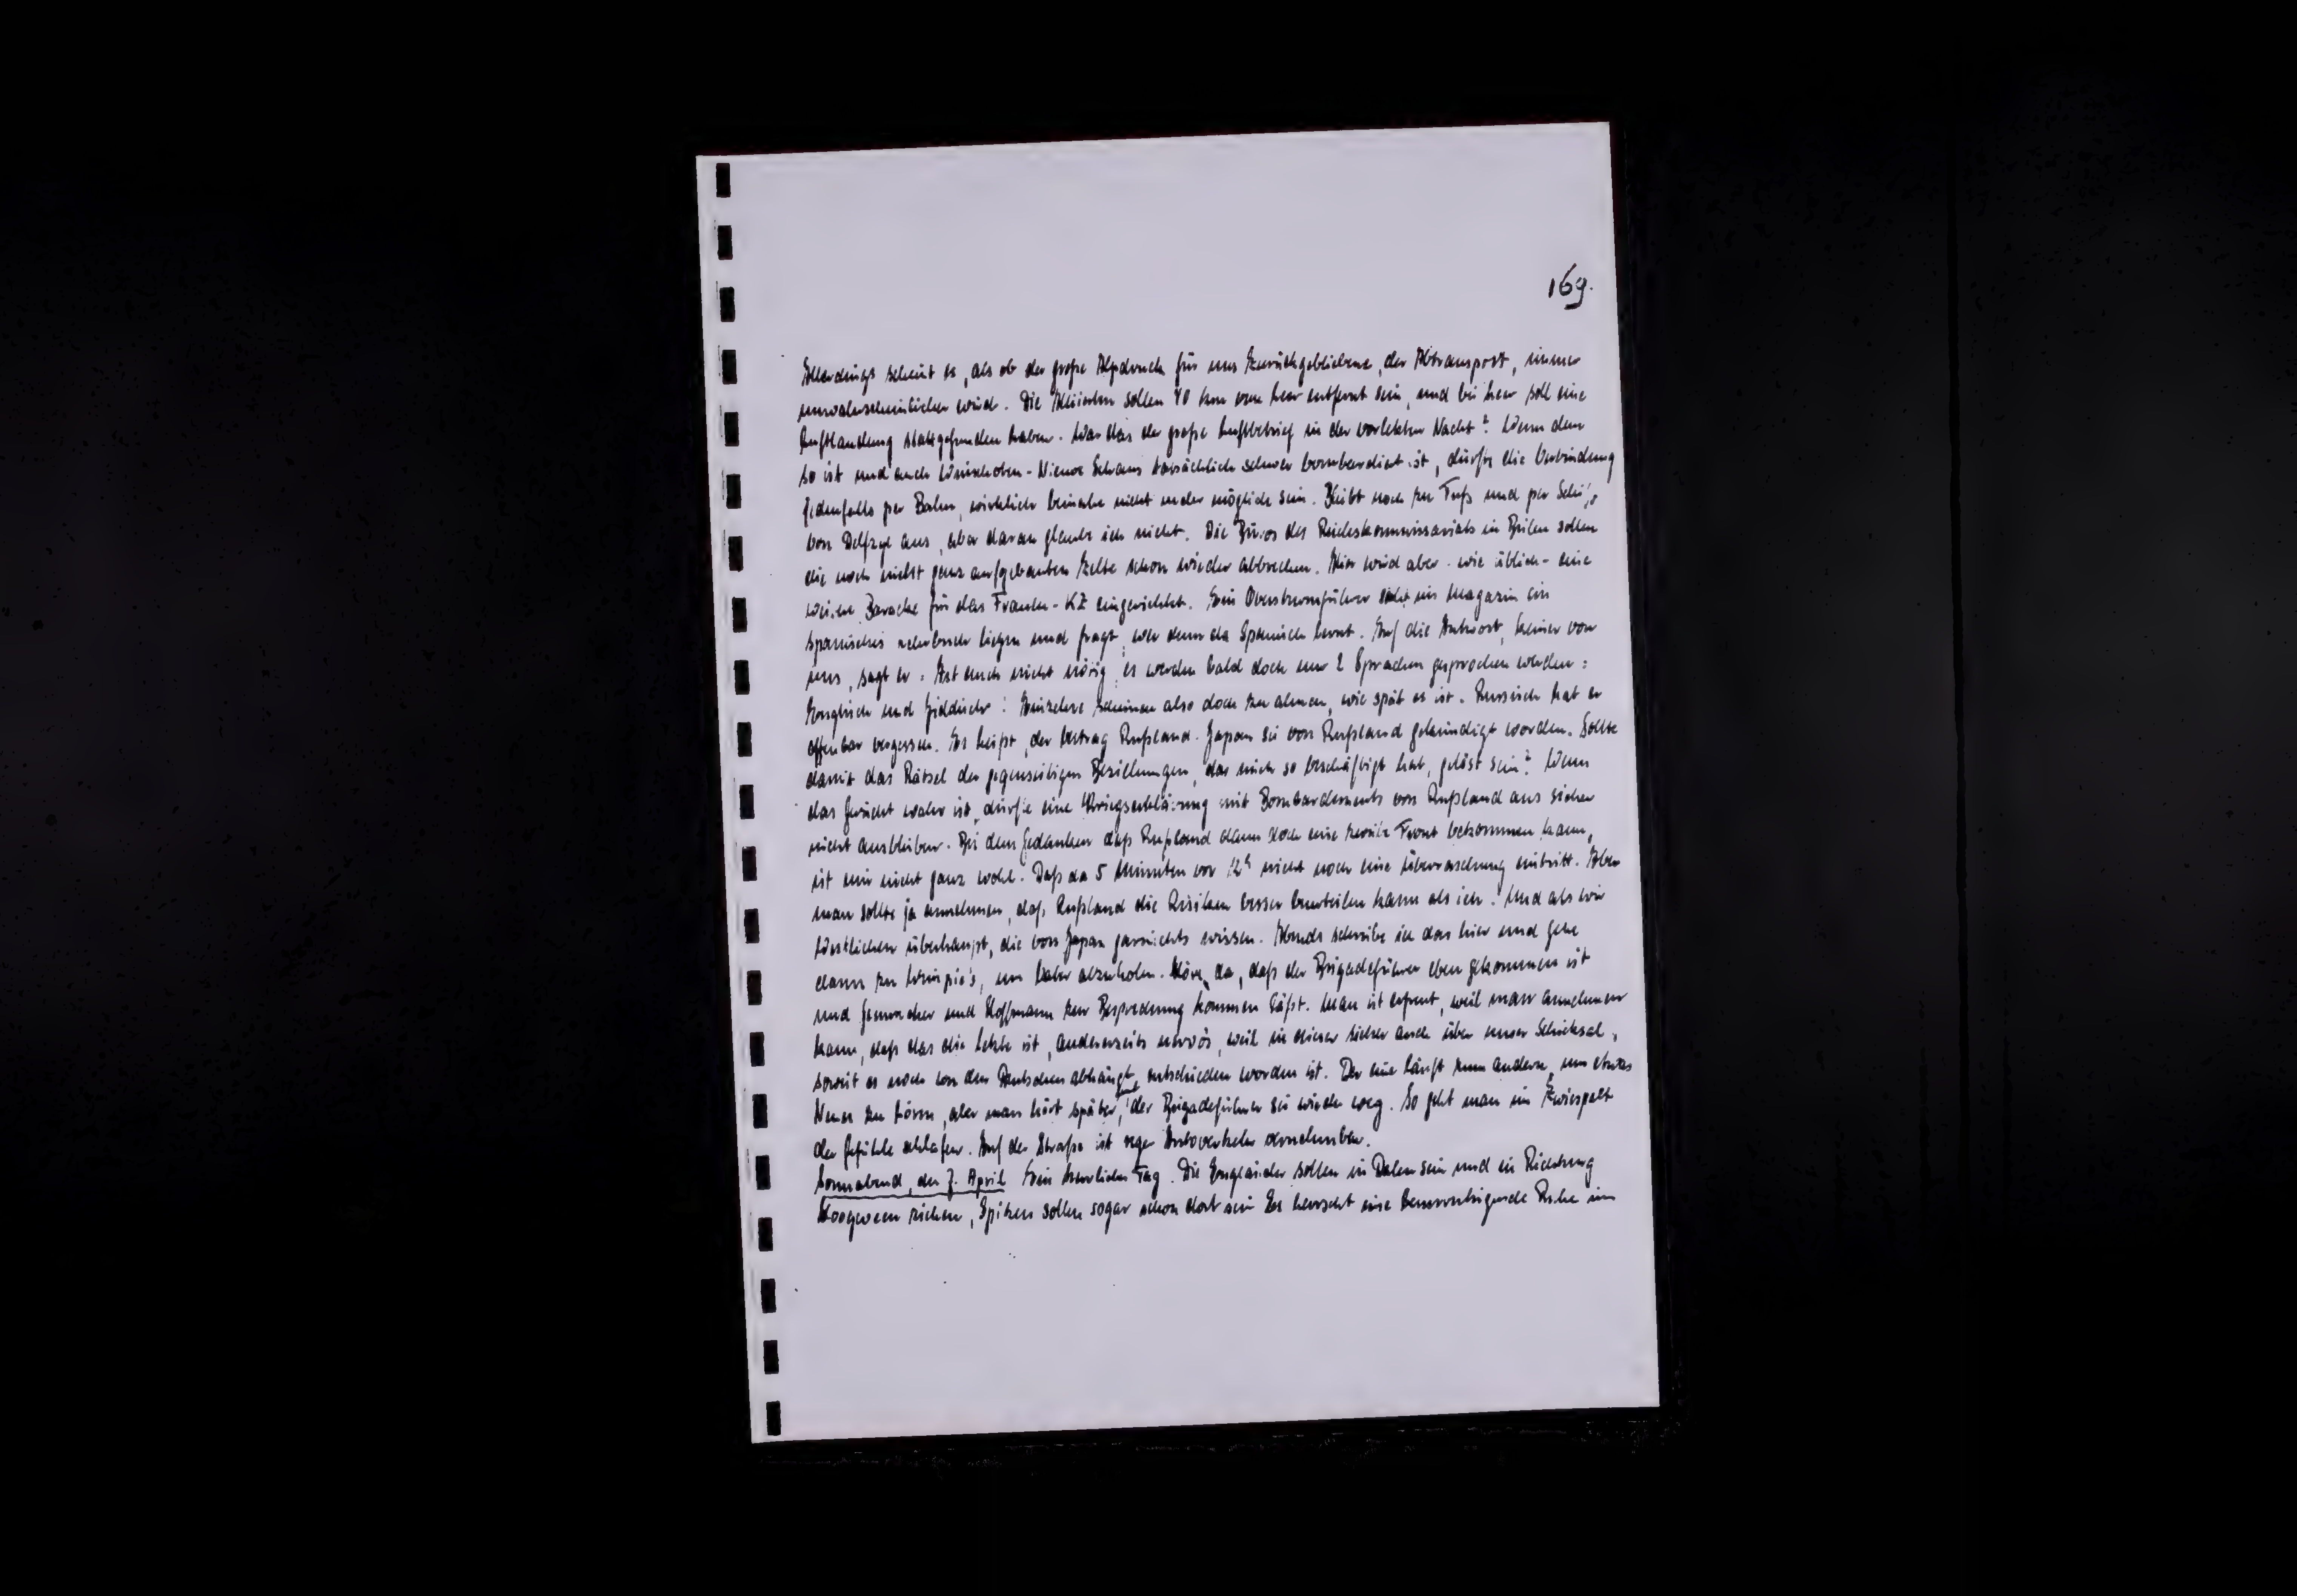 169.
Allerdings scheint es, als ob der große Alpdruck für uns Zurückgebliebene, der Abtransport, immer
unwahrscheinlicher wird. Die Alliierten sollen 40 km von hier entfernt sein, und bei hier soll eine
Luftlandung stattgefunden haben. War das der große Luftbetrieb in der vorletzten Nacht? Wenn dem
so ist und auch Winschoten - Nieuwe Schans tatsächlich schwer bombardiert ist, dürfte die Verbindung
jedenfalls per Bahn, wirklich beinahe nicht mehr möglich sein. Bleibt noch zu Fuß und per Schiff
von Delfzyl aus, aber daran glaube ich nicht. Die Büros des Reichskommissariats in Beilen sollen
die noch nicht ganz aufgebauten Zelte schon wieder abbrechen. Hier wird aber - wie üblich - eine
weitere Baracke für das Frauen-KZ eingerichtet. Ein Obersturmführer sieht im Magazin ein
spanisches Lehrbuch liegen und fragt, wer denn da Spanisch lernt. Auf die Antwort, keiner von
uns, sagt er: Ist auch nicht nötig, es werden bald doch nur 2 Sprachen gesprochen werden:
Englisch und Jiddisch! Einzelne scheinen also doch zu ahnen, wie spät es ist. Russisch hat er
offenbar vergessen. Es heißt, der Vertrag Rußland-Japan sei von Rußland gekündigt worden. Sollte
damit das Rätsel der gegenseitigen Beziehungen, das mich so beschäftigt hat, gelöst sein? Wenn
das Gerücht wahr ist, dürfte eine Kriegserklärung mit Bombardements von Rußland aus sicher
nicht ausbleiben. Bei dem Gedanken daß Rußland dann doch eine zweite Front bekommen kann,
ist mir nicht ganz wohl. Daß da 5 Minuten vor 12h nicht noch eine Überraschung eintritt. Aber
man sollte ja annehmen, daß Rußland die Risiken besser beurteilen kann als ich. Und als wir
Westlichen überhaupt, die von Japan garnichts wissen. Abends schreibe ich das hier und gehe
dann zu, um abzuholen. Höre da, daß der Brigadeführer eben gekommen ist
und Gemmeker und Hoffmann zur Besprechung kommen läßt. Man ist erfreut, weil man annehmen
kann, daß das die letzte ist, andererseits nervös, weil in dieser sicher auch über unser Schicksal,
soweit es noch von den Deutschen abhängt, entschieden worden ist. Der eine läuft zum andern, um etwas
Neues zu hören, aber man hört später, der Brigadeführer sei wieder weg. So geht man im Zwiespalt
der Gefühle schlafen. Auf der Straße ist reger Autoverkehr vernehmbar.
Sonnabend, den 7. April Ein herrlicher Tag. Die Engländer sollen in Dalen sein und in Richtung
Hoogeveen ziehen, Spitzen sollen sogar schon dort sein Es herrscht eine beunruhigende Ruhe im